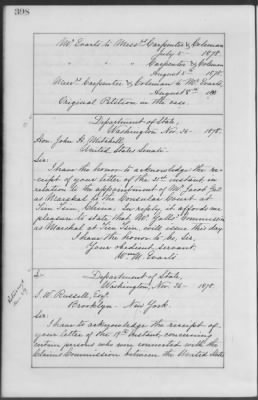 398
Mr Evarts to Messrs Carpenter & Coleman
July 5 - 1878.
" " " Carpenter & Coleman
August 5th 1878.
Messrs Carpenter & Coleman to Mr Evarts,
August 8th
Original Petition in the case.
Department of State,
Washington, Nov. 26 - 1878.
Hon. John H. Mitchell,
United States Senate.
Sir:
I have the honor to acknowledge the re-
ceipt of your letter of the 21st instant in
relation to the appointment of Mr Jacob
as Marshal of the Consular Court at
Tien Tsin, China. In reply, it affords me
pleasure to state, that Mr Commission
as Marshal at Tien Tsin, will issue this day.
I have the honor to be, Sir,
Your obedient servant,
Wm M. Evarts
Department of State,
Washington, Nov. 26 - 1878.
S. W. Russell, Esq.
Brooklyn - New York.
Sir:
I have to acknowledge the receipt of
your letter of the 19th instant, concerning
certain persons who were connected with the
Claims Commission between the United States